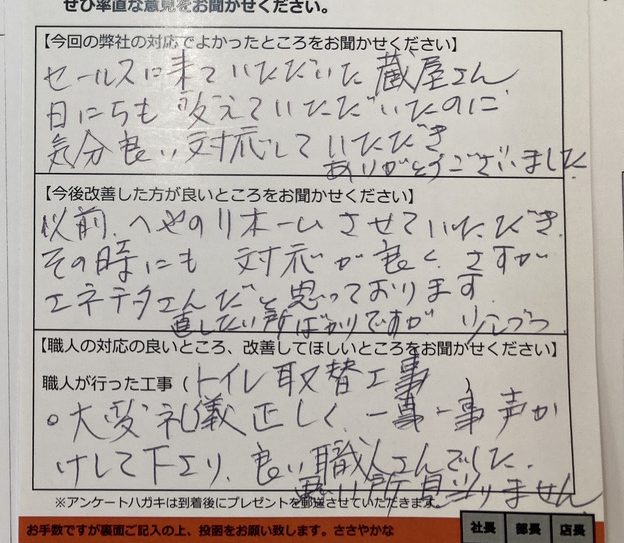 ぜひ率直な意見をお聞かせください。
【今回の弊社の対応でよかったところをお聞かせください】
セールスに来ていただいた 蔵屋さん
日にちも 変えていただいたのに
気分良い対応して いただき
ありがとうございました
【今後改善した方が良いところをお聞かせください】
以前、へやのリホームさせていただき、
その時にも 対応が良く、さすが
エネテクさんだと思っております。
直したい所ばかりですが 少しづつ
【職人の対応の良いところ、改善してほしいところをお聞かせください】
職人が行った工事（トイレ取替工事）
○大変礼儀正しく、一事一事声か
けして下さり、良い職人さんでした。
悪い所見当りません
※アンケートハガキは到着後にプレゼントを郵送させていただきます。
お手数ですが裏面ご記入の上、投函をお願い致します。ささやかな
社長 部長 店長